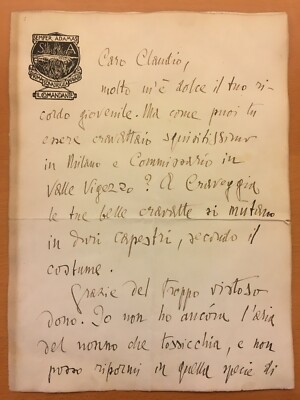 SEMPER ADAMAS
IL COMANDANTE
Caro Claudio,
molto m'è dolce il tuo ri-
cordo giovenile. Ma come puoi tu
essere cravattaio squisitissimo
in Milano e Commissario in
Valle Vigezzo? A Craveggia
le tue belle cravatte si mutano
in capestri, secondo il
costume.
Grazie del troppo virtuoso
dono. Io non ho ancóra l'asia
del nonno che tossicchia, e non
posso ripormi in quella specie di